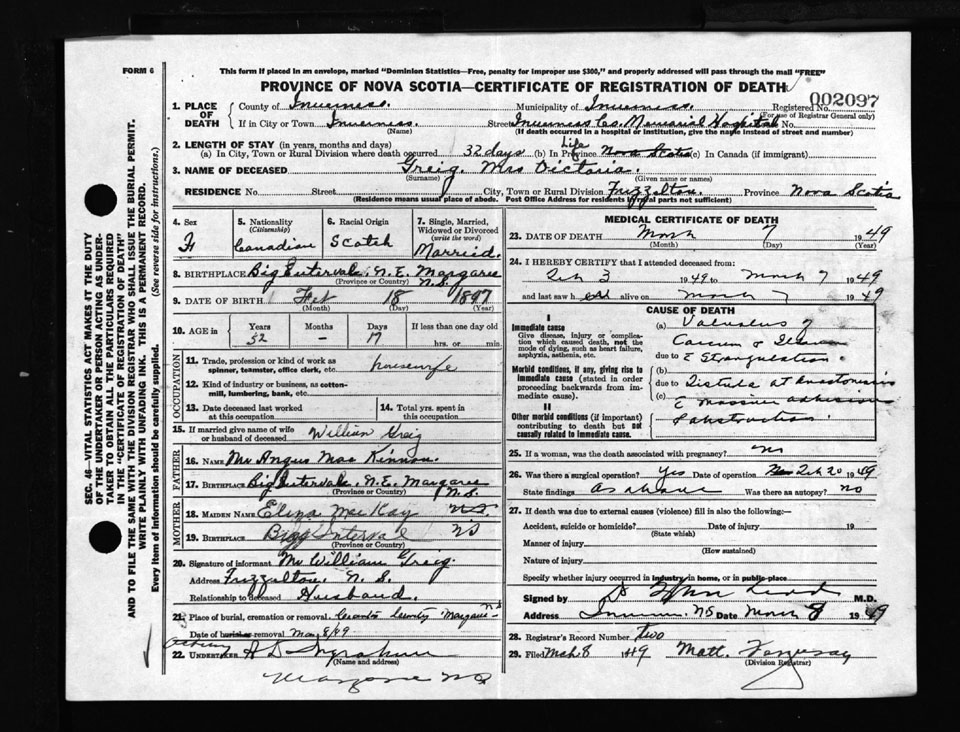 FORM 6
This form if placed in an envelope, marked "Dominion Statistics—Free, penalty for improper use $300," and properly addressed will pass through the mail "FREE"
PROVINCE OF NOVA SCOTIA—CERTIFICATE OF REGISTRATION OF DEATH
002097
1. PLACE OF DEATH County of Inverness. Municipality of Inverness. Registered No.
(For use of Registrar General only)
If in City or Town Inverness. Street Inverness Co. Memorial Hospital No.
(Name) (If death occurred in a hospital or institution, give the name instead of street and number)
2. LENGTH OF STAY (in years, months and days)
(a) In City, Town or Rural Division where death occurred 32 days (b) In Province Life Nova Scotia (c) In Canada (if immigrant)
3. NAME OF DECEASED Greig, Mrs Victoria.
(Surname) (Given name or names)
RESIDENCE No. Street City, Town or Rural Division Frizzelton. Province Nova Scotia
(Residence means usual place of abode. Post Office Address for residents in rural parts not sufficient)
4. Sex F
5. Nationality (Citizenship) Canadian
6. Racial Origin Scotch
7. Single, Married, Widowed or Divorced (write the word) Married.
8. BIRTHPLACE Big Intervale, N.E. Margaree N.S.
(Province or Country)
9. DATE OF BIRTH Feb 18 1897
(Month) (Day) (Year)
10. AGE in Years 52 Months – Days 17 If less than one day old hrs. or min.
OCCUPATION
11. Trade, profession or kind of work as spinner, teamster, office clerk, etc. housewife
12. Kind of industry or business, as cotton-mill, lumbering, bank, etc.
13. Date deceased last worked at this occupation
14. Total yrs. spent in this occupation
15. If married give name of wife or husband of deceased William Greig
FATHER
16. Name Mr Angus MacKinnon.
17. Birthplace Big Intervale, N.E. Margaree N.S.
(Province or Country)
MOTHER
18. Maiden Name Eliza MacKay N.S.
19. Birthplace Bigg Interval NS
(Province or Country)
20. Signature of informant Mr William Greig.
Address Frizzelton, N.S.
Relationship to deceased Husband.
21. Place of burial, cremation or removal Cemetery Margaree N.S.
Date of burial or removal 8/49
22. UNDERTAKER acting
(Name and address)
MEDICAL CERTIFICATE OF DEATH
23. DATE OF DEATH March 7 1949
(Month) (Day) (Year)
24. I HEREBY CERTIFY that I attended deceased from:
Feb 3 1949 to March 7 1949
and last saw her alive on March 7 1949
CAUSE OF DEATH
I
Immediate cause
Give disease, injury or complication which caused death, not the mode of dying, such as heart failure, asphyxia, asthenia, etc.
(a) Volvulus of
Caecum & Ileum
due to c Strangulation.
Morbid conditions, if any, giving rise to immediate cause (stated in order proceeding backwards from immediate cause).
(b)
due to Fistula at anastomosis
(c) c massive adhesions
II
Other morbid conditions (if important) contributing to death but not causally related to immediate cause.
& obstruction.
25. If a woman, was the death associated with pregnancy? no
26. Was there a surgical operation? Yes Date of operation Feb 20 1949
State findings As above Was there an autopsy? no
27. If death was due to external causes (violence) fill in also the following:—
Accident, suicide or homicide? Date of injury 19
(State which)
Manner of injury
(How sustained)
Nature of injury
Specify whether injury occurred in industry, in home, or in public place
Signed by M.D.
Address Inverness NS Date March 8 1949
28. Registrar's Record Number two
29. Filed Mch 8 1949 Matt.
(Division Registrar)
SEC. 46—VITAL STATISTICS ACT MAKES IT THE DUTY OF THE UNDERTAKER OR PERSON ACTING AS UNDERTAKER TO OBTAIN ALL THE PARTICULARS REQUIRED IN THE "CERTIFICATE OF REGISTRATION OF DEATH" AND TO FILE THE SAME WITH THE DIVISION REGISTRAR WHO SHALL ISSUE THE BURIAL PERMIT.
WRITE PLAINLY WITH UNFADING INK. THIS IS A PERMANENT RECORD.
Every item of information should be carefully supplied. (See reverse side for instructions.)